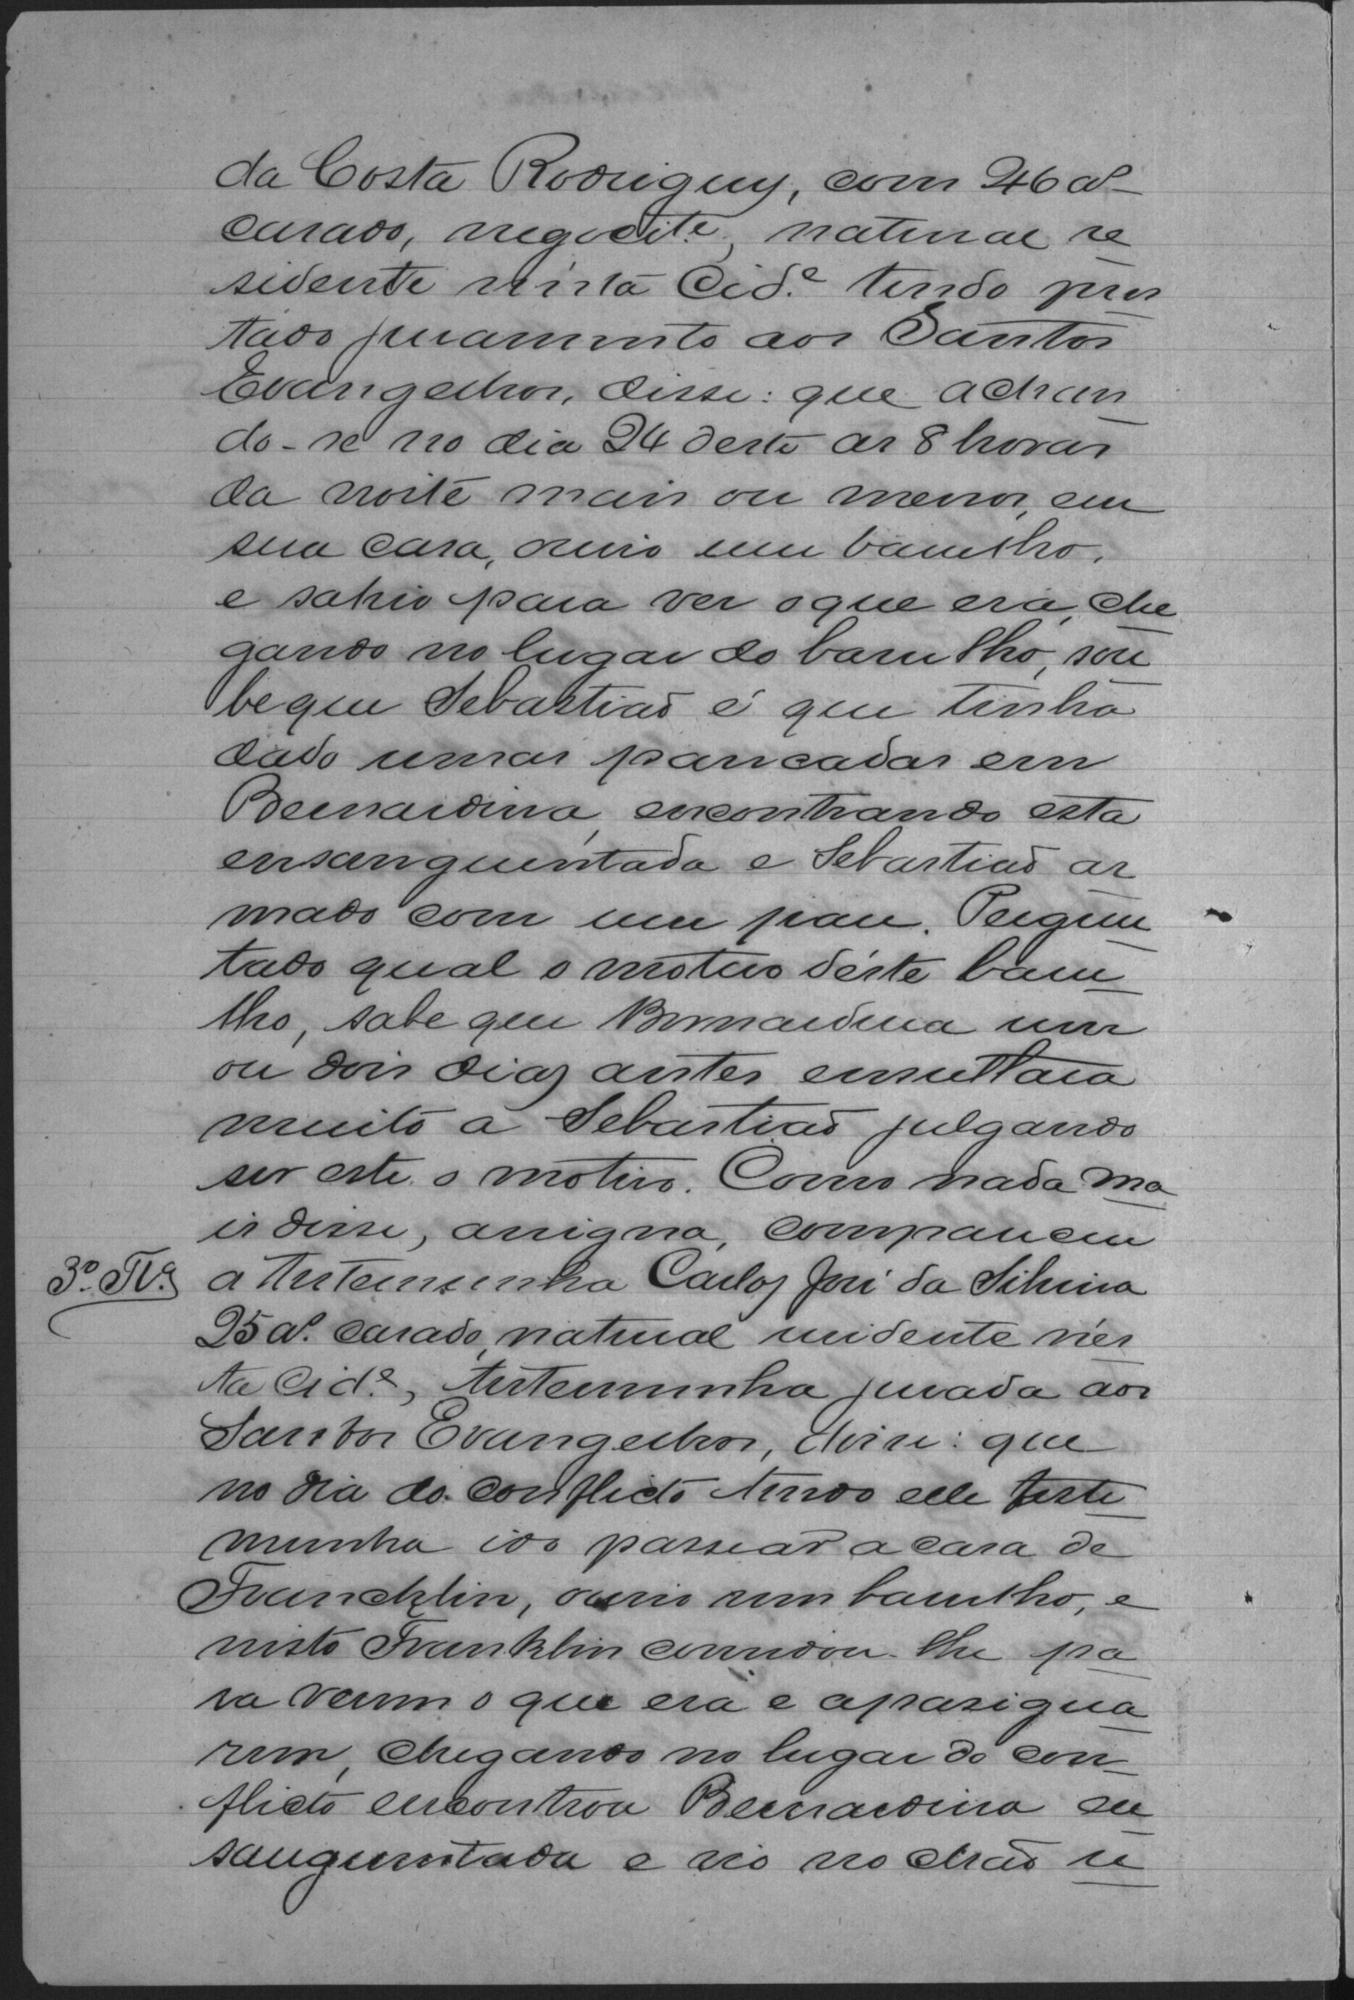 da Costa Rodrigues, com 26 aˢ
casado, negocite, natural re
sidente nésta Cidᵉ tendo pres
tado juramento aos Santos
Evangelhos, disse: que achan
do-se no dia 24 deste as 8 horas
da noite mais ou menos, em
sua casa, ouvio um barulho,
e sahio para ver o que era, che
gando no lugar do barulho, sou
be que Sebastião é que tinha
dado umas pancadas em
Bernardina, encontrando esta
ensanguentada e Sebastião ar
mado com um pau. Pergun
tado qual o motivo déste baru
lho, sabe que Bernardina um
ou dois dias antes ensultara
muito a Sebastião julgando
ser este o motivo. Como nada ma
is disse, assigna, compareceu
3ª Tª a testemunha Carlos José da Silveira
25 aˢ. casado, natural residente nés
ta Cidᵉ, testemunha jurada aos
Santos Evangelhos, disse: que
no dia do conflicto tendo elle teste
munha ido passear a casa de
Francklin, ouvio um barulho, e
nisto Franklin convidou-lhe pa
ra verem o que era e apasigua
rem, chegando no lugar do con
flicto encontrou Bernardina en
sanguentada e vio no chão u